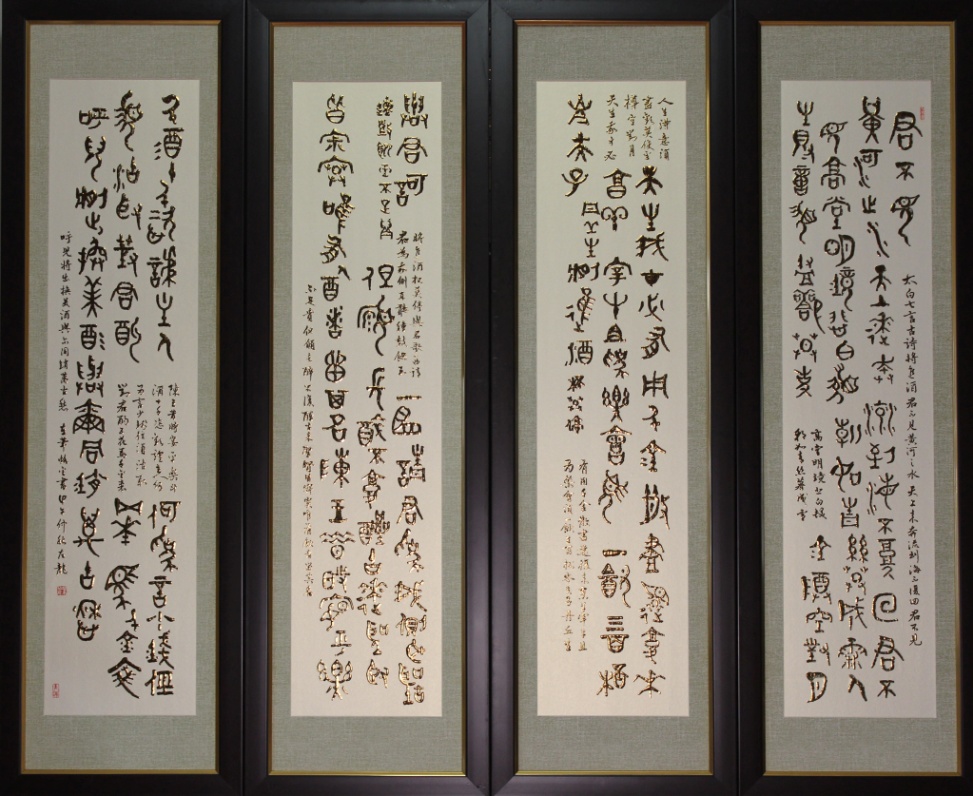 君不見
太白七言古詩將進酒 君不見黃河之水天上來奔流到海不復回君不見
黃河之水天上來奔流到海不復回君不
見高堂明鏡悲白髮朝如青絲暮成雪人
生得意須盡歡莫使
高堂明鏡悲白髮
朝如青絲暮成雪
金樽空對月
人生得意須
盡歡莫使金
樽空對月
天生我才必
天生我才必有用千金散盡還復來烹
羔宰牛且為樂會須一飲三百杯
岑夫子丹丘生將進酒杯莫停
有用千金散盡還復來烹羊宰牛且
為樂會須一飲三百杯岑夫子丹丘生
與君歌
將進酒杯莫停與君歌一曲請
君為我側耳聽鐘鼓饌玉
一曲請君為我側耳聽
鐘鼓饌玉不足貴
但願長醉不願醒古來聖賢
皆寂寞惟有飲者留其名陳王昔時宴平樂
不足貴但願長醉不復醒古來聖賢皆寂寞惟有飲者留其名
斗酒十千恣讙謔主人
陳王昔時宴平樂斗
酒十千恣歡謔主人何
為言少錢徑須沽取
對君酌五花馬千金裘
何為言少錢徑
須沽取對君酌
五花馬千金裘
呼兒將出換美酒與爾同銷萬古愁
呼兒將出換美酒與爾同銷萬古愁